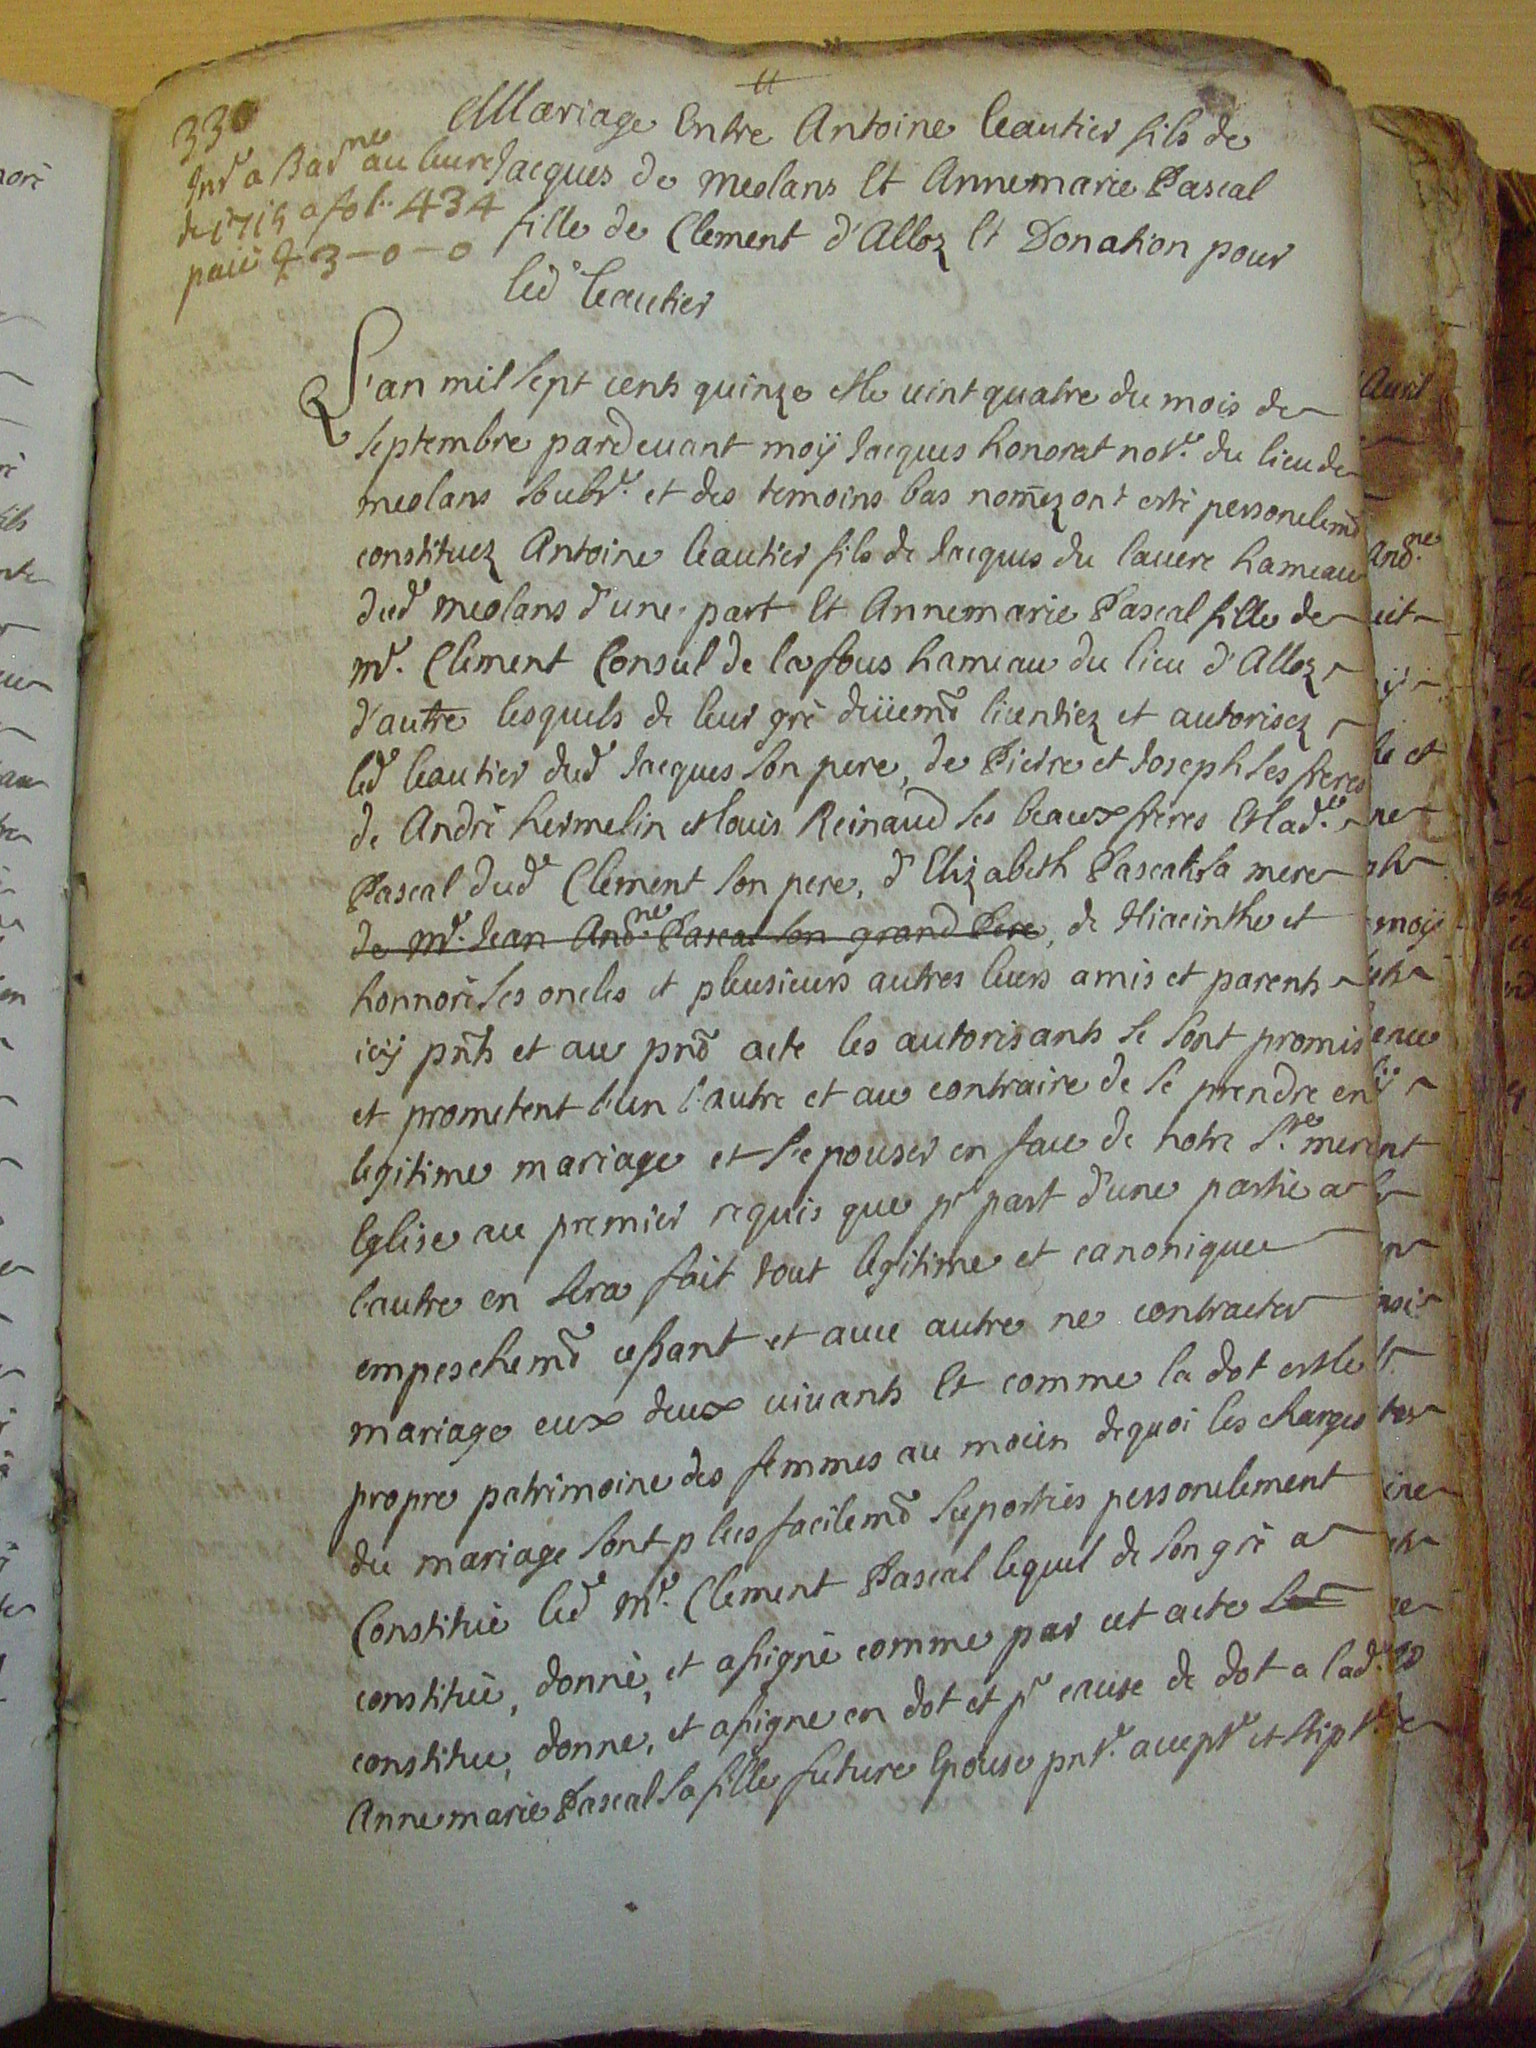 330
Insr a Barne au livre
de 1715 a fol. 434
paié # 3-0-0
Mariage Entre Antoine Leautier fils de
Jacques de meolans Et Annemarie Pascal
fille de Clement d'Alloz Et Donation pour
led leautier
L'an mil sept cents quinze et le vint quatre du mois de
septembre pardevant moÿ Jacques honorat notre du lieu de
meolans soubsr. et des temoins bas nom̃ez ont esté personelemd
constituez Antoine leautier fils de Jacques du lavere hameau
dud meolans d'une part Et Annemarie Pascal fille de
mr. Clement Consul de la fous hameau du lieu d'Alloz
d'autre lesquels de leur gré deüemd licentiez et autorisez
led leautier dud Jacques son pere, de Pierre et Joseph ses freres
de André hermelin et louis Reinaud ses beaux freres Et lade.
Pascal dud Clement son pere, d'Elizabeth Pascalis sa mere
de mr. Jean Andne Pascal son grand Pere, de Hiacinthe et
honnoré ses oncles et pleusieurs autres leurs amis et parents
icÿ pnts et au pnd acte les autorisants se sont promis
et prometent l'un l'autre et au contraire de se prendre en
legitime mariage et s'epouser en face de notre Ste. mere
Eglise au premier requis que pr part d'une partie a
l'autre en sera fait tout legitime et canonique
empeschemd cessant et avec autre ne contracter
mariage eux deux vivants Et comme la dot est le
propre patrimoine des femmes au moien dequoi les charges
du mariage sont plus facilemd suportées personelement
Constitué led mr. Clement Pascal lequel de son gré a
constitué, donné, et assigné comme par cet acte
constitue, donne, et assigne en dot et pr cause de dot a lade.
Annemarie Pascal sa fille future Epouse pnte. accepte et stipte.